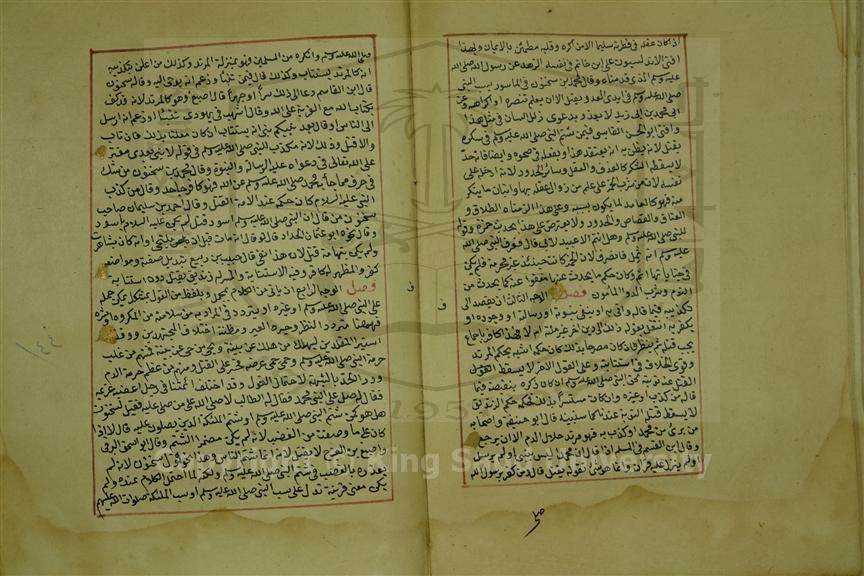 اذ كان عقله فى فطرته سليما الا من اكره وقلبه مطمئن بالايمان وبهذا
افتى الاندلسيون على ابن حاتم فى نفسه الزهد عن رسول الله صلى الله
عليه وسلم الذى قدمناه وقال محمد بن سحنون فى الماسور يسب النبى
صلى الله عليه وسلم فى ايدى العدو يقتل الا ان يعلم تنصره او اكراهه وعن
ابى محمد بن ابى زيد لا يعذر بدعوى زلل اللسان فى مثل هذا
وافتى ابو الحسن القابسى فيمن شتم النبى صلى الله عليه وسلم فى سكره
يقتل لانه يظن به انه يعتقد هذا ويفعله فى صحوه وايضا فانه حد
لا يسقطه السكر كالقذف والقتل وسائر الحدود لانه ادخله على
نفسه لان من شرب الخمر على علم من زوال عقله بها واتيان ما ينكر
منه فهو كالعامد لما يكون بسببه وعلى هذا الزمناه الطلاق و
العتاق والقصاص والحدود ولا يعترض على هذا بحديث حمزة وقوله
للنبى صلى الله عليه وسلم وهل انتم الا عبيد لابى قال فعرف النبى صلى الله
عليه وسلم انه ثمل فانصرف لان الخمر كانت حينئذ غير محرمة فلم يكن
فى جناياتها اثم وكان حكم ما يحدث عنها معفوا عنه كما يحدث من
النوم وشرب الدوا المأمون فصل الوجه الثالث ان يقصد الى
تكذيبه فيما قاله واتى به او ينفى نبوته او رسالته او وجوده او
يكفر به انتقل بقوله ذلك الى دين اخر غير ملته ام لا فهذا كافر باجماع
يجب قتله ثم ينظر فان كان مصرحا بذلك كان حكمه اشبه بحكم المرتد
وقوى الخلاف فى استتابته وعلى القول الاخر لا يسقط القتل
القتل عنه توبته لحق النبى صلى الله عليه وسلم ان كان ذكره بنقيصة فيما
قاله من كذب او غيره وان كان مستسرا بذلك فحكمه حكم الزنديق
لا يسقط قتله التوبة عندنا كما سنبينه قال ابو حنيفة واصحابه
من برئ من محمد او كذب به فهو مرتد حلال الدم الا ان يرجع
وقال ابن القسم فى المسلم اذا قال ان محمدا ليس بنبى او لم يرسل
او لم ينزل عليه قران وانما هو شئ تقوله يقتل قال ومن كفر برسول الله
صلى
صلى الله عليه وسلم وانكره من المسلمين فهو بمنزلة المرتد وكذلك من اعلن بتكذيبه
انه كالمرتد يستتاب وكذلك قال فيمن تنبأ وزعم انه يوحى اليه وقاله سحنون
قال ابن القاسم دعا الى ذلك سرا او جهرا قال اصبغ وهو كالمرتد لانه قد كفر
بكتاب الله مع الفرية على الله وقال اشهب فى يهودى تنبأ او زعم انه ارسل
الى الناس او قال بعد نبيكم نبى انه يستتاب ان كان معلنا بذلك فان تاب
والا قتل وذلك لانه مكذب للنبى صلى الله عليه وسلم فى قوله لا نبى بعدى مفتر
على الله تعالى فى دعواه عليه الرسالة والنبوة وقال محمد بن سحنون من شك
فى حرف مما جاء به محمد صلى الله عليه وسلم عن الله فهو كافر جاحد وقال من كذب
النبى عليه السلام كان حكمه عند الامة القتل وقال احمد بن سليمان صاحب
سحنون من قال ان النبى صلى الله عليه وسلم اسود قتل لم يكن عليه السلام باسود
وقال نحوه ابو عثمان الحداد قال لو قال انه مات قبل ان يلتحى او انه كان بتاهرت
ولم يكن بتهامة قتل لان هذا نفى قال حبيب بن ربيع تبديل صفته ومواضعه
كفر والمظهر له كافر وفيه الاستتابة والمسر له زنديق يقتل دون استتابة
فصل الوجه الرابع ان ياتى من الكلام بمجمل ويلفظ من القول بمشكل يمكن حمله
على النبى صلى الله عليه وسلم او غيره او يتردد فى المراد به من سلامته من المكروه او شره
فههنا متردد النظر وحيرة العبر ومظنة اختلاف المجتهدين ووقفة
استبراء المقلدين ليهلك من هلك عن بينة ويحيى من حى عن بينة فمنهم من غلب
حرمة النبى صلى الله عليه وسلم وحمى حمى عرضه فجسر على القتل ومنهم من عظم حرمة الدم
ودرأ الحد بالشبهة لاحتمال القول وقد اختلف ائمتنا فى رجل اغضبه غريمه
فقال له صل على النبى محمد فقال له الطالب لا صلى الله على من صلى عليه فقيل لسحنون
هل هو كمن شتم النبى صلى الله عليه وسلم او شتم الملئكة الذين يصلون عليه قال لا اذا
كان على ما وصفت من الغضب لانه لم يكن مضمرا الشتم وقال ابو اسحق البرقى
واصبغ بن الفرج لا يقتل لانه انما شتم الناس وهذا نحو قول سحنون لانه لم
يعذره بالغضب فى شتم النبى صلى الله عليه وسلم ولكنه لما احتمل الكلام عنده ولم
يكن معه قرينة تدل على سب النبى صلى الله عليه وسلم او سب الملئكة صلوات الله عليهم
١٤٤
1957
Copyright © King Saud University